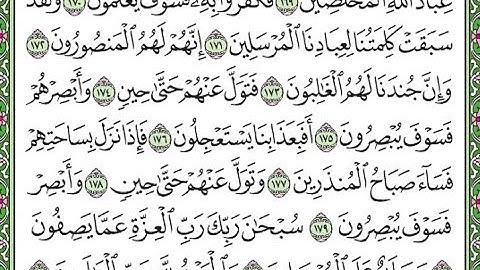 عِبَادَ ٱللَّهِ ٱلْمُخْلَصِينَ ١٦٩ فَكَفَرُوا۟ بِهِۦ فَسَوْفَ يَعْلَمُونَ ١٧٠ وَلَقَدْ
سَبَقَتْ كَلِمَتُنَا لِعِبَادِنَا ٱلْمُرْسَلِينَ ١٧١ إِنَّهُمْ لَهُمُ ٱلْمَنصُورُونَ ١٧٢
وَإِنَّ جُندَنَا لَهُمُ ٱلْغَٰلِبُونَ ١٧٣ فَتَوَلَّ عَنْهُمْ حَتَّىٰ حِينٍ ١٧٤ وَأَبْصِرْهُمْ
فَسَوْفَ يُبْصِرُونَ ١٧٥ أَفَبِعَذَابِنَا يَسْتَعْجِلُونَ ١٧٦ فَإِذَا نَزَلَ بِسَاحَتِهِمْ
فَسَآءَ صَبَاحُ ٱلْمُنذَرِينَ ١٧٧ وَتَوَلَّ عَنْهُمْ حَتَّىٰ حِينٍ ١٧٨ وَأَبْصِرْ
فَسَوْفَ يُبْصِرُونَ ١٧٩ سُبْحَٰنَ رَبِّكَ رَبِّ ٱلْعِزَّةِ عَمَّا يَصِفُونَ